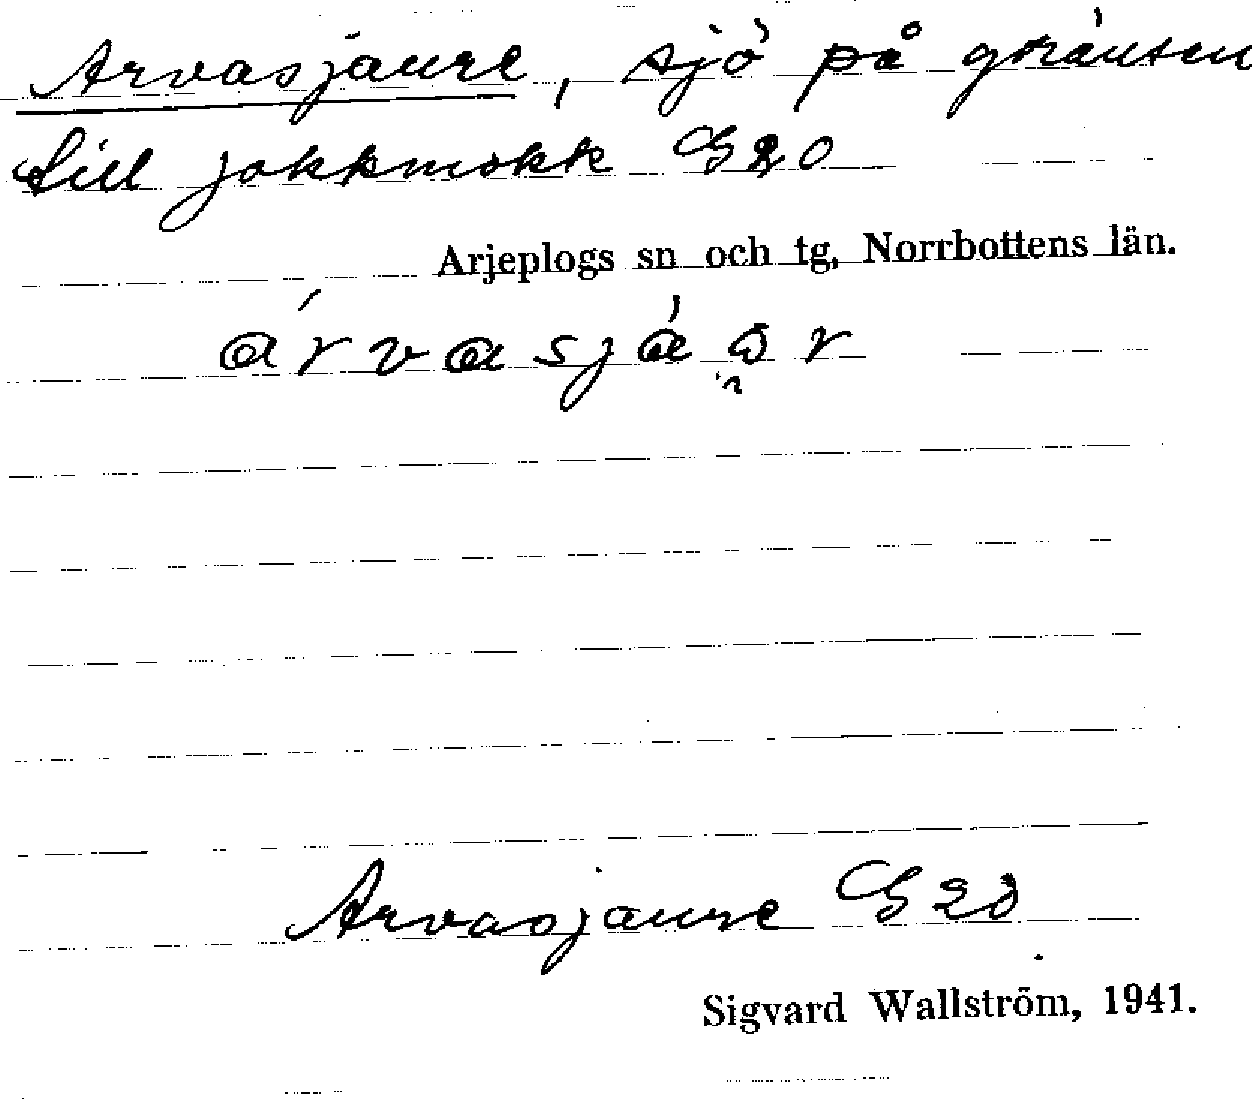 Arvasjaure, sjö på gränsen
till Jokkmokk G20
Arjeplogs sn och tg, Norrbottens län.
Arvasjaure G20
Sigvard Wallström, 1941.